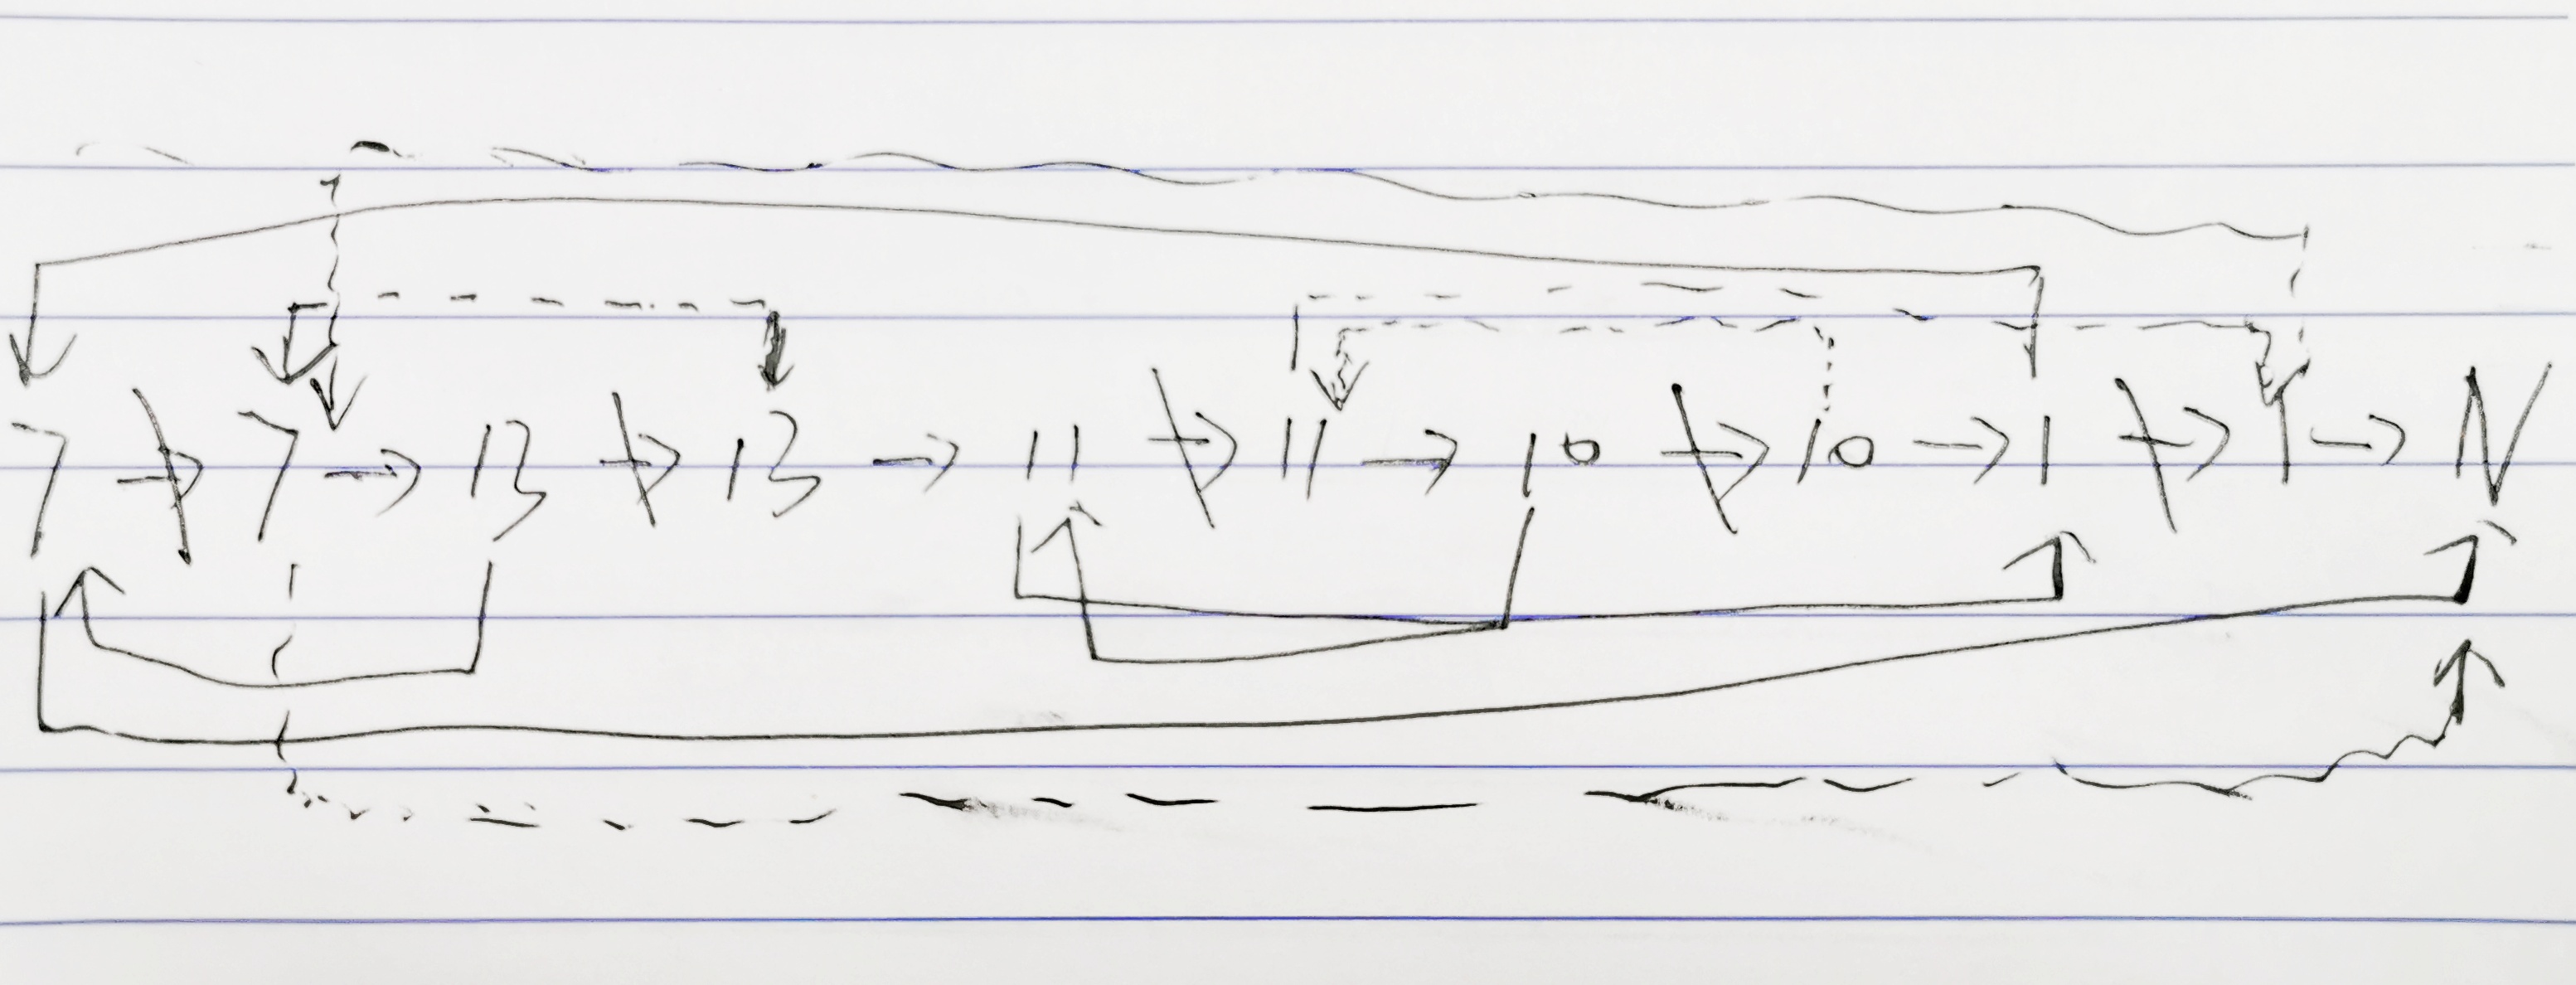 7 → 7 → 13 → 13 → 11 → 11 → 10 → 10 → 1 → 1 → N